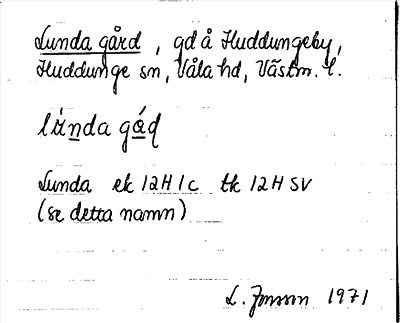 Lunda gård, gd å Huddungeby,
Huddunge sn, Våla hd, Västm. l.
Lunda ek 12H1c tk 12H SV
(se detta namn)
L. Jonsson 1971